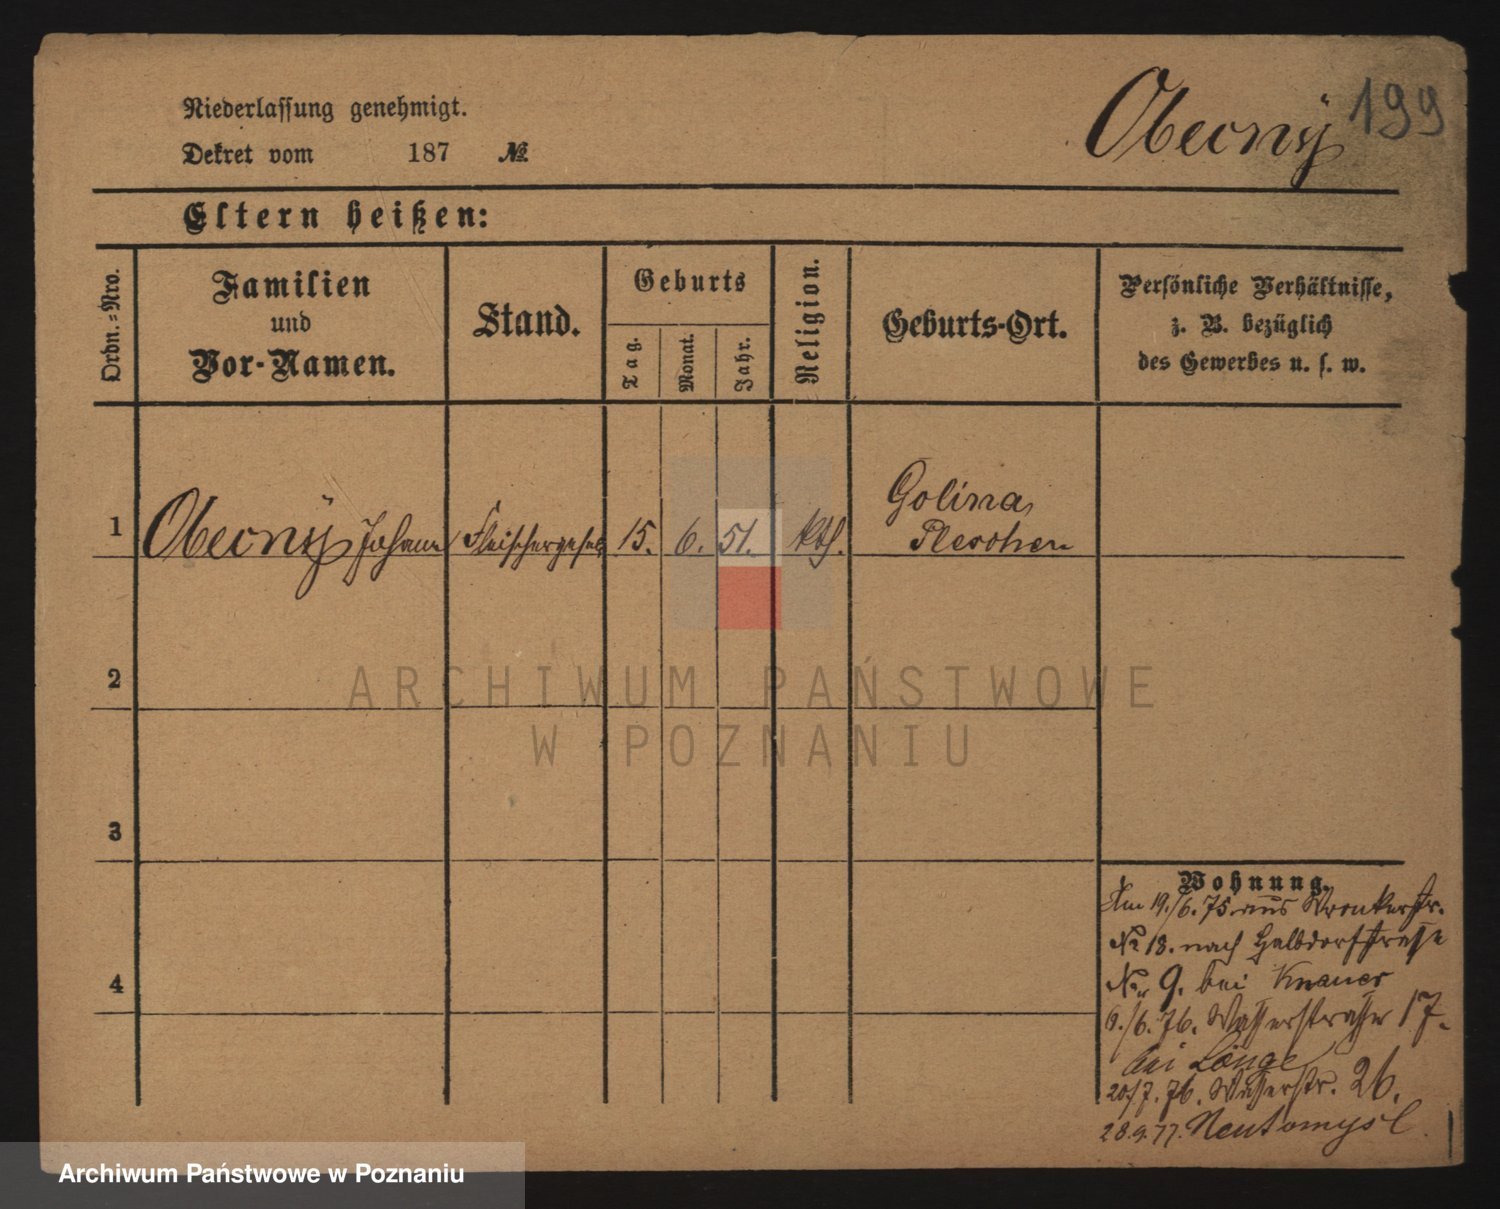 Niederlassung genehmigt.
Dekret vom 187 №
Obecný 199
Eltern heißen:
Ordn.-Nro.
Familien
und
Vor-Namen.
Stand.
Geburts
Tag.
Monat.
Jahr.
Religion.
Geburts-Ort.
Persönliche Verhältnisse,
z. B. bezüglich
des Gewerbes u. s. w.
1 Obecný Johann Fleischergesel 15. 6. 51. kth. Golina
Pleschen
2
3
4
Wohnung.
Am 19./6. 75 aus Wronkerstr.
№ 18. nach Halbdorfstrasse
№ 9. bei Knauer
9./6. 76. Wasserstrasse 17.
bei Länge
20/7. 76. Wasserstr. 26.
28.9.77. Neutomysl
ARCHIWUM PAŃSTWOWE
W POZNANIU
Archiwum Państwowe w Poznaniu